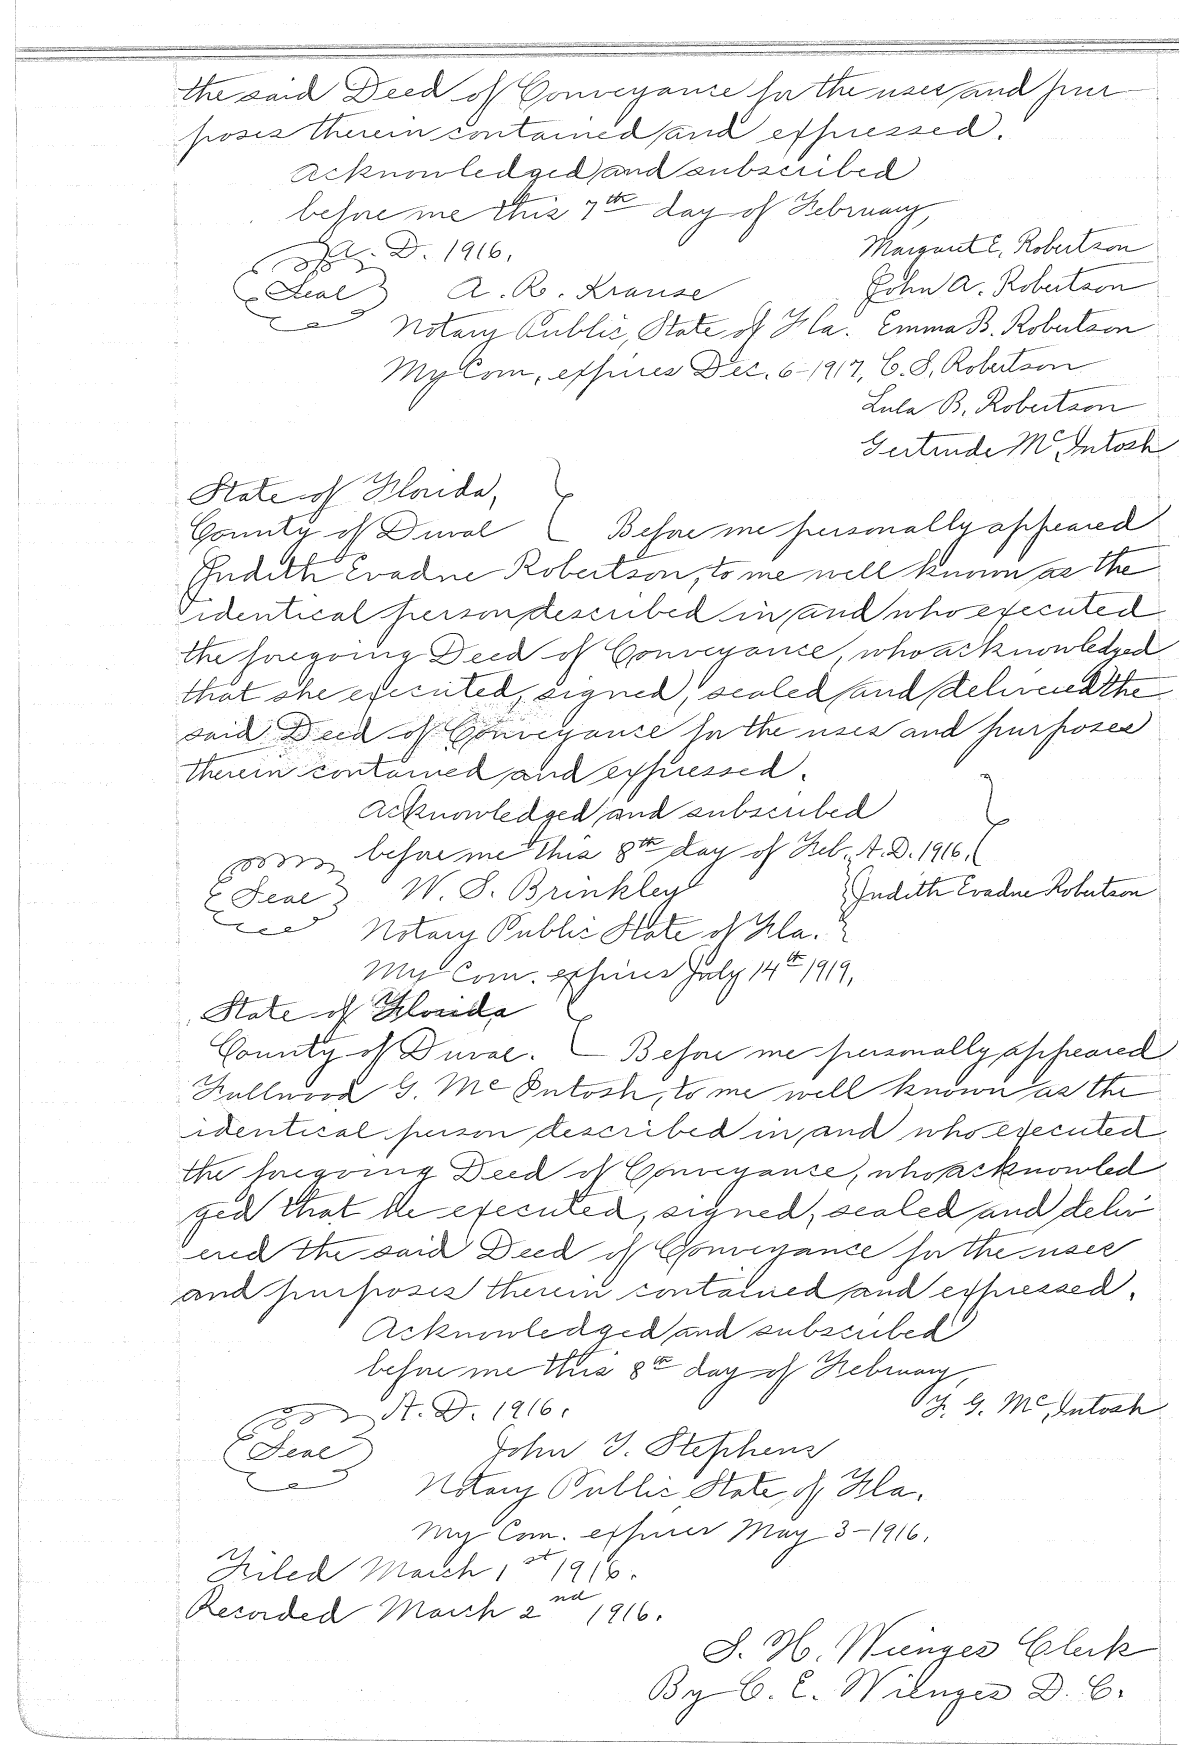 the said Deed of Conveyance for the uses and pur
poses therein contained and expressed.
Acknowledged and subscribed
before me this 7th day of February,
A. D. 1916.
Margaret E. Robertson
Seal
A. R. Krause
John A. Robertson
Notary Public, State of Fla.
Emma B. Robertson
My Com, expires Dec. 6-1917,
C. S. Robertson
Lula B. Robertson
Gertrude McIntosh
State of Florida,
County of Duval
Before me personally appeared
Judith Evadne Robertson, to me well known as the
identical person described in and who executed
the foregoing Deed of Conveyance, who acknowledged
that she executed, signed, sealed and delivered the
said Deed of Conveyance for the uses and purposes
therein contained and expressed.
Acknowledged and subscribed
before me this 8th day of Feb. A.D. 1916.
Seal
W. S. Brinkley
Judith Evadne Robertson
Notary Public State of Fla.
My Com. expires July 14th 1919,
State of Florida
County of Duval.
Before me personally appeared
Fullwood G. McIntosh, to me well known as the
identical person described in, and who executed
the foregoing Deed of Conveyance, who acknowled
ged that he executed, signed, sealed and deliv
ered the said Deed of Conveyance for the uses
and purposes therein contained and expressed.
Acknowledged and subscribed
before me this 8th day of February,
A. D. 1916.
F. G. McIntosh
Seal
John F. Stephens
Notary Public, State of Fla.
My Com. expires May 3-1916.
Filed March 1st 1916.
Recorded March 2nd 1916.
S. H. Wienges Clerk
By C. E. Wienges D. C.